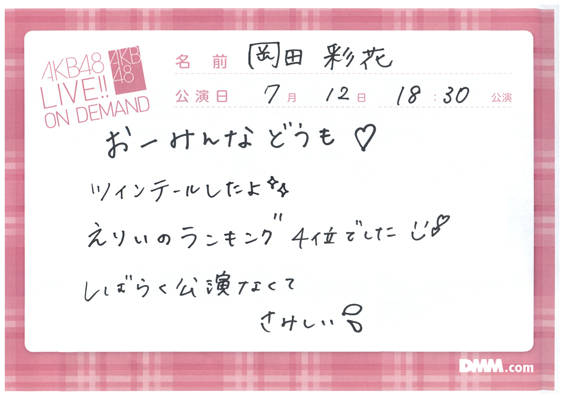 AKB48
LIVE!!
ON DEMAND
AKB
48
名前 岡田 彩花
公演日 7月 12日 18:30 公演
おーみんなどうも♡
ツインテールしたよ
えりいのランキング 4位でした
しばらく公演なくて
さみしい
DMM.com